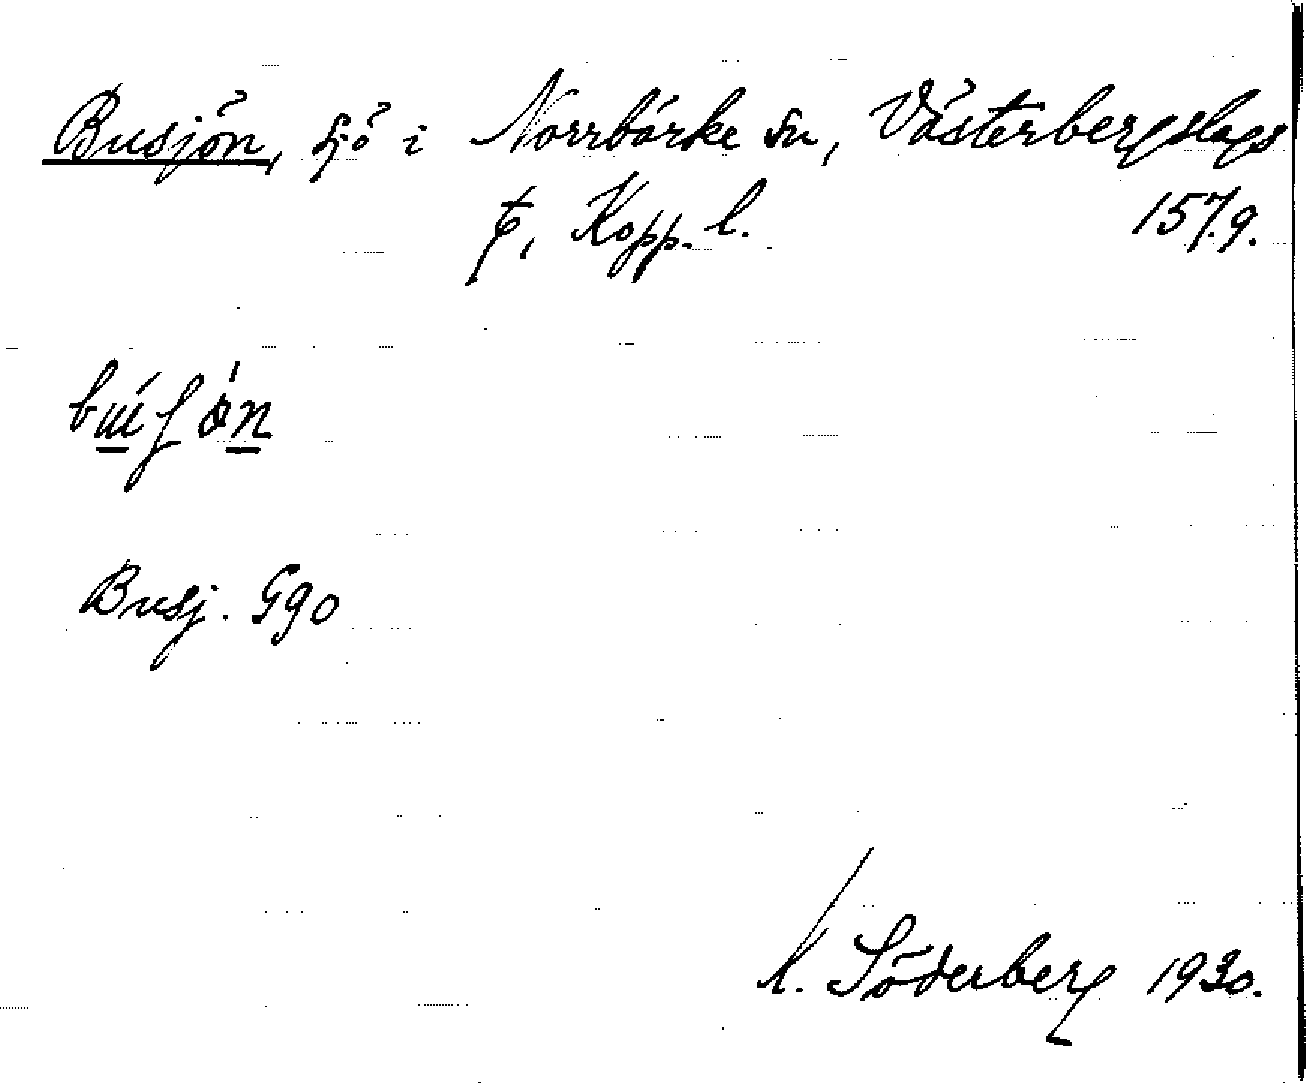 Busjön, sjö i Norrbärke sn, Västerbergslags
t, Kopp. l. 157.9.
Busj. Ggo
K. Söderberg 1930.